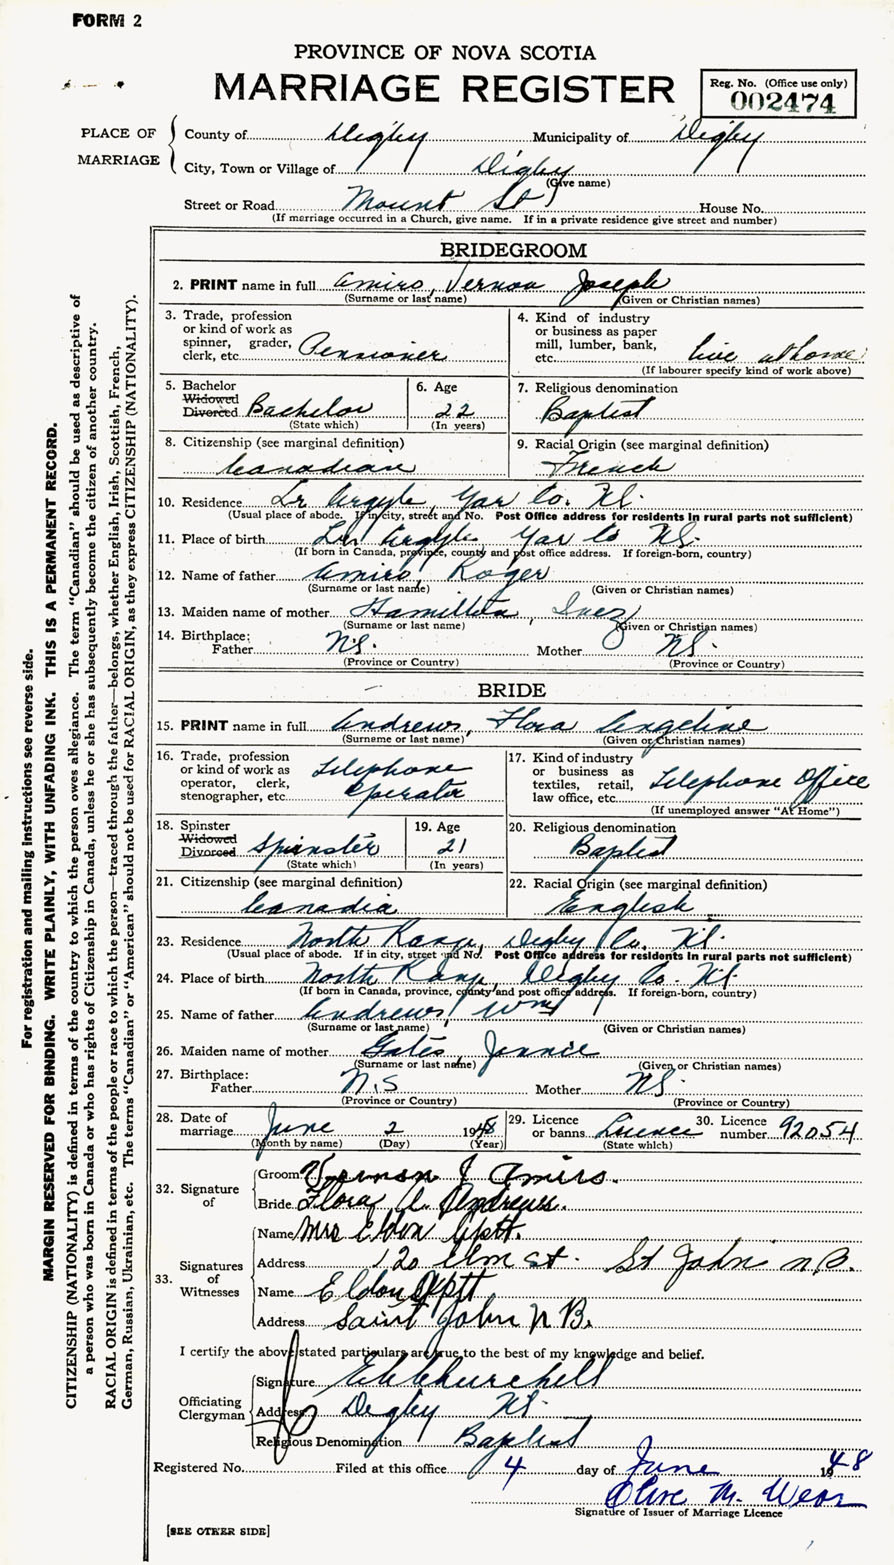 FORM 2
PROVINCE OF NOVA SCOTIA
MARRIAGE REGISTER
Reg. No. (Office use only)
002474
PLACE OF MARRIAGE
County of Digby Municipality of Digby
City, Town or Village of Digby
(Give name)
Street or Road Mount St House No.
(If marriage occurred in a Church, give name. If in a private residence give street and number)
BRIDEGROOM
2. PRINT name in full Amiro, Vernon Joseph
(Surname or last name) (Given or Christian names)
3. Trade, profession or kind of work as spinner, grader, clerk, etc. Pensioner
4. Kind of industry or business as paper mill, lumber, bank, etc. live at home
(If labourer specify kind of work above)
5. Bachelor Widowed Divorced Bachelor
(State which)
6. Age 22
(In years)
7. Religious denomination
Baptist
8. Citizenship (see marginal definition)
Canadian
9. Racial Origin (see marginal definition)
French
10. Residence Lr Argyle, Yar Co. NS.
(Usual place of abode. If in city, street and No. Post Office address for residents in rural parts not sufficient)
11. Place of birth Lr Argyle Yar Co NS.
(If born in Canada, province, county and post office address. If foreign-born, country)
12. Name of father Amiro, Roger
(Surname or last name) (Given or Christian names)
13. Maiden name of mother Hamilton, Inez
(Surname or last name) (Given or Christian names)
14. Birthplace:
Father NS. Mother NS.
(Province or Country) (Province or Country)
BRIDE
15. PRINT name in full Andrews, Flora Angeline
(Surname or last name) (Given or Christian names)
16. Trade, profession or kind of work as operator, clerk, stenographer, etc. Telephone Operator
17. Kind of industry or business as textiles, retail, law office, etc. Telephone Office
(If unemployed answer "At Home")
18. Spinster Widowed Divorced Spinster
(State which)
19. Age 21
(In years)
20. Religious denomination
Baptist
21. Citizenship (see marginal definition)
Canadia
22. Racial Origin (see marginal definition)
English
23. Residence North Range, Digby Co. NS.
(Usual place of abode. If in city, street and No. Post Office address for residents in rural parts not sufficient)
24. Place of birth North Range, Digby Co. NS
(If born in Canada, province, county and post office address. If foreign-born, country)
25. Name of father Andrews, Wm
(Surname or last name) (Given or Christian names)
26. Maiden name of mother Gates, Jennie
(Surname or last name) (Given or Christian names)
27. Birthplace:
Father N.S Mother NS.
(Province or Country) (Province or Country)
28. Date of marriage June 2 1948
(Month by name) (Day) (Year)
29. Licence or banns Licence
(State which)
30. Licence number 92054
32. Signature of
Groom Vernon J Amiro.
Bride Flora A. Andrews.
33. Signatures of Witnesses
Name Mrs Eldon
Address 120 Elm St. St John N.B.
Name Eldon
Address Saint John N B.
I certify the above stated particulars are true to the best of my knowledge and belief.
Officiating Clergyman
Signature Churchill
Address Digby NS.
Religious Denomination Baptist
Registered No. Filed at this office 4 day of June 1948
Olive M. Weir
Signature of Issuer of Marriage Licence
[SEE OTHER SIDE]
For registration and mailing instructions see reverse side.
MARGIN RESERVED FOR BINDING. WRITE PLAINLY, WITH UNFADING INK. THIS IS A PERMANENT RECORD.
CITIZENSHIP (NATIONALITY) is defined in terms of the country to which the person owes allegiance. The term "Canadian" should be used as descriptive of
a person who was born in Canada or who has rights of Citizenship in Canada, unless he or she has subsequently become the citizen of another country.
RACIAL ORIGIN is defined in terms of the people or race to which the person—traced through the father—belongs, whether English, Irish, Scottish, French,
German, Russian, Ukrainian, etc. The terms "Canadian" or "American" should not be used for RACIAL ORIGIN, as they express CITIZENSHIP (NATIONALITY).